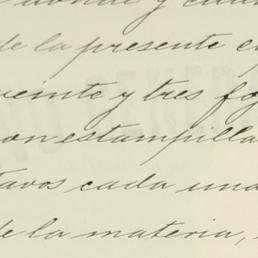 de la presente
veinte y tres
con estampilla
cada una
de la materia,